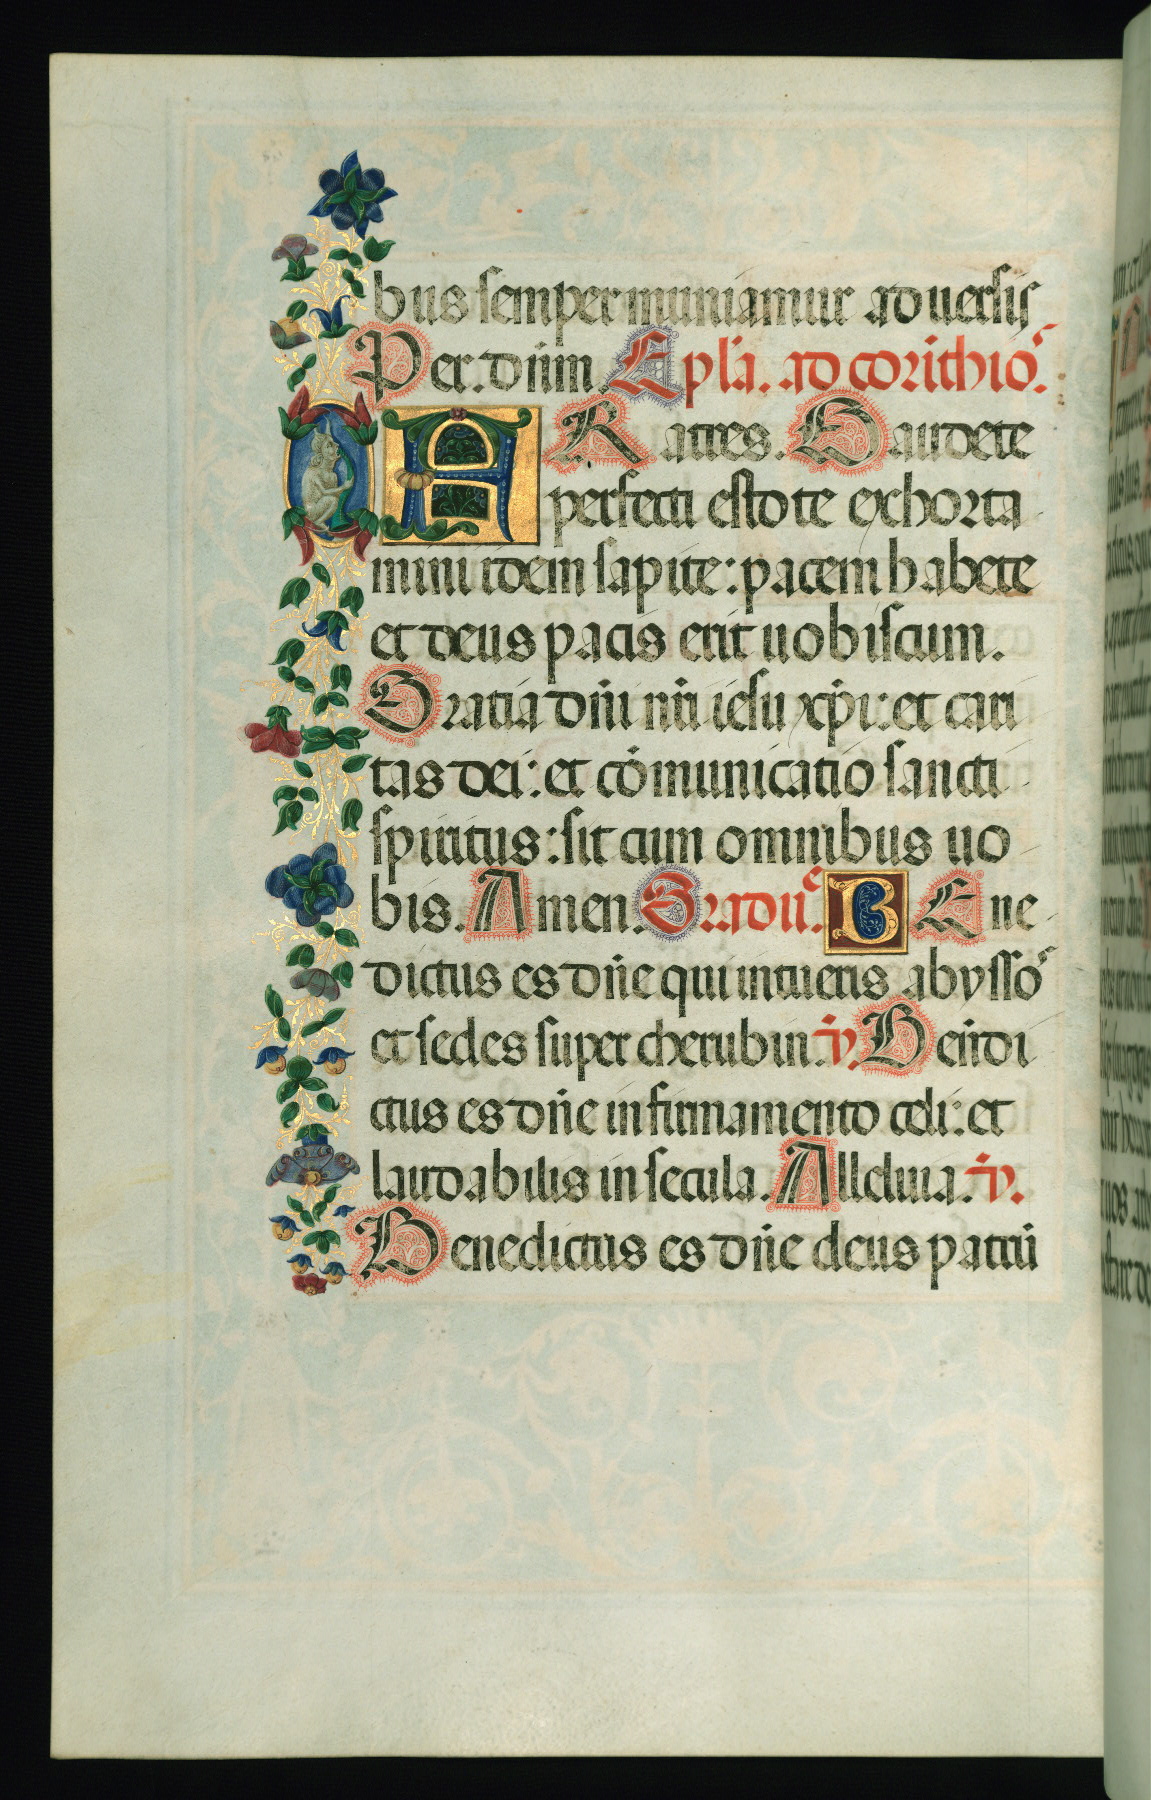 bus semper muniamur aduersis
Per. dūm Epl̄a. ad corīthio᷒.
A Ratres. Gaudete
perfecti estote exhorta
mini idem sapite: pacem habete
et deus pacis erit uobiscum.
Gratia dn̄i nr̄i iesu xp̄i: et cari
tas dei: et cōmunicatio sancti
spiritus: sit cum omnibus uo
bis. Amen. Gradu᷒. B Ene
dictus es dn̄e qui intueris abysso᷒
et sedes super cherubin. v̄. Benedi
ctus es dn̄e in firmamento celi: et
laudabilis in secula. Alleluia. v̄.
Benedictus es dn̄e deus patrū